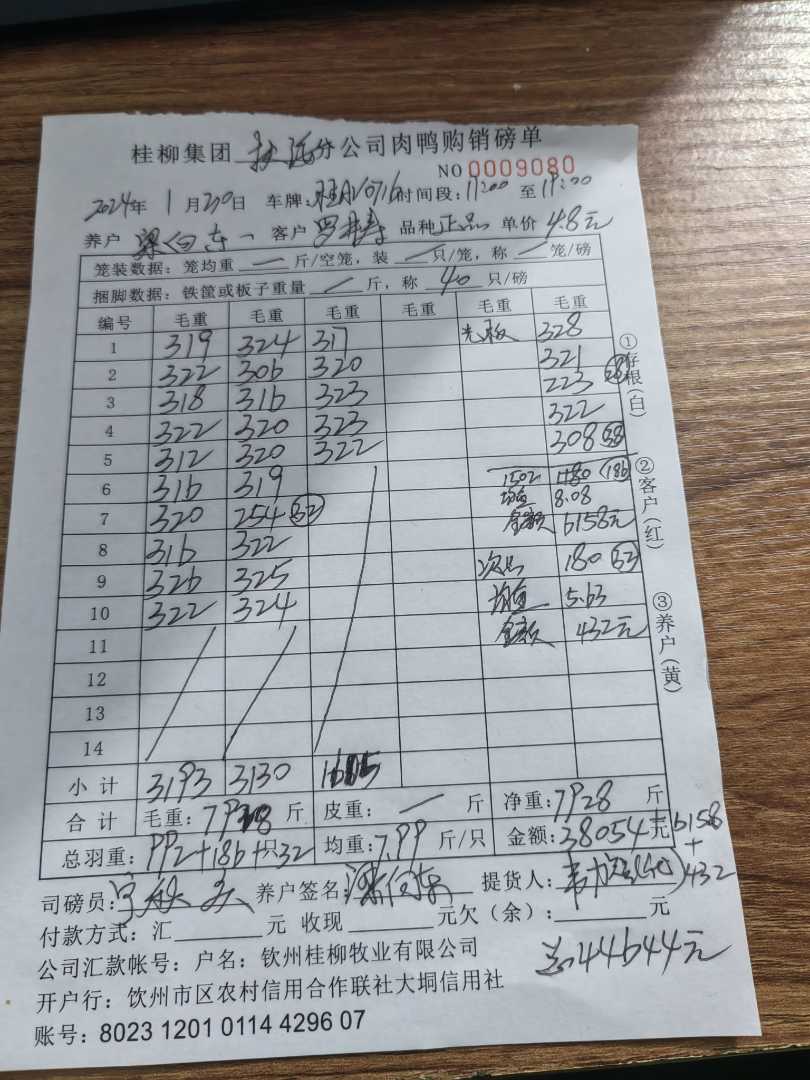 桂柳集团 分公司肉鸭购销磅单
NO 0009080
2024年 1月20日 车牌: 0716 时间段: 17:00 至 19:00
养户 梁向东 客户 罗 品种 正品 单价 4.8元
笼装数据: 笼均重 — 斤/空笼, 装 — 只/笼, 称 — 笼/磅
捆脚数据: 铁筐或板子重量 — 斤, 称 40 只/磅
编号 毛重 毛重 毛重 毛重 毛重 毛重
1 319 324 317 光板 328
2 322 306 320 321
3 318 316 323 223 28
4 322 320 323 322
5 312 320 322 308 38
6 316 319 1502 186
7 320 254 32 均重 8.08
金额 6158元
8 316 322
9 326 325 次品 180 32
10 322 324 均重 5.63
11 金额 432元
12
13
14
小计 3193 3130 1605
合计 毛重: 7928 斤 皮重: — 斤 净重: 7928 斤
总羽重: 992+186+只32 均重: 7.99 斤/只 金额: 38054元+6158+432
司磅员: 养户签名: 梁向东 提货人:
付款方式: 汇 元 收现 元欠(余): 元
总44644元
公司汇款帐号: 户名: 钦州桂柳牧业有限公司
开户行: 饮州市区农村信用合作联社大垌信用社
账号: 8023 1201 0114 4296 07
①存根(白)
②客户(红)
③养户(黄)